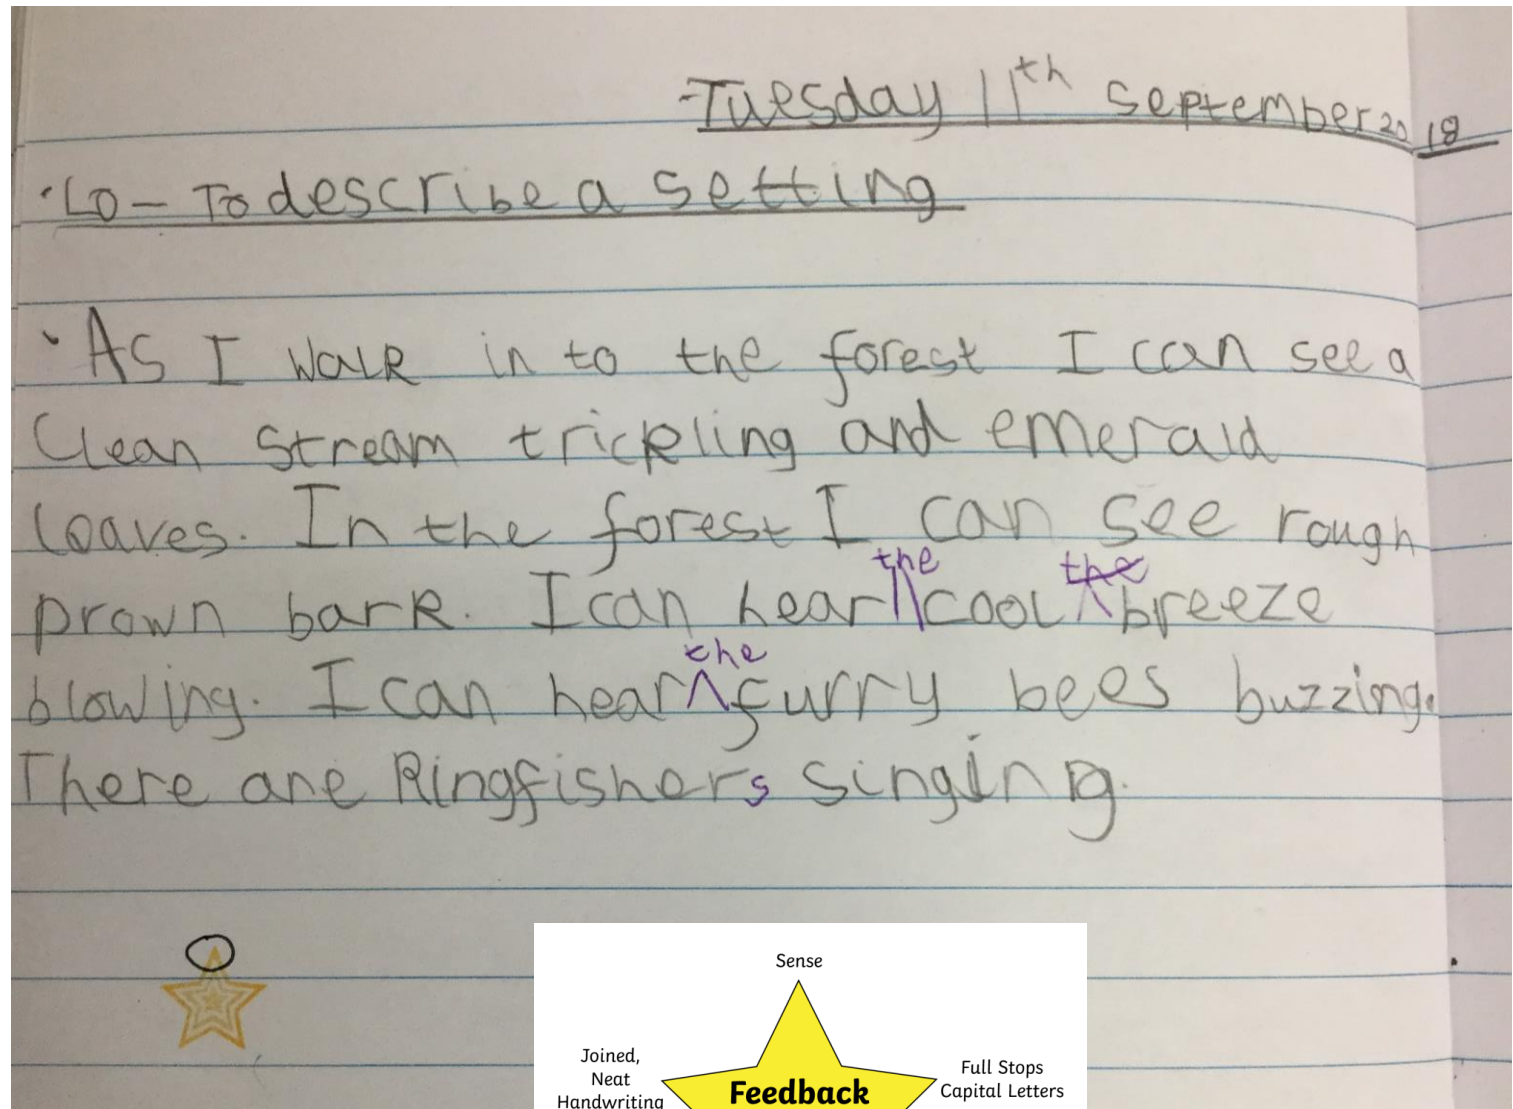 Tuesday 11th September 2018
LO - To describe a setting
As I walk in to the forest I can see a
Clean stream trickling and emerald
loaves. In the forest I can see rough
the the
prown bark. I can hear cool breeze
the
blowing. I can hear furry bees buzzing.
There are Kingfishers singing.
Sense
Joined,
Neat
Handwriting
Full Stops
Capital Letters
Feedback